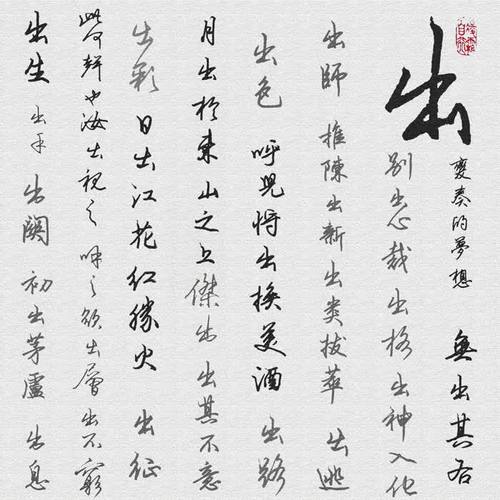 出
變奏的夢想 無出其右
別出心裁 出格 出神入化
出師 推陳出新 出类拔萃 出逃
出色 呼兒將出換美酒 出路
月出於東山之上 傑出 出其不意
出彩 日出江花紅勝火 出征
此何聲也汝出視之 呼之欲出 層出不窮
出生 出手 出 初出茅廬 出息